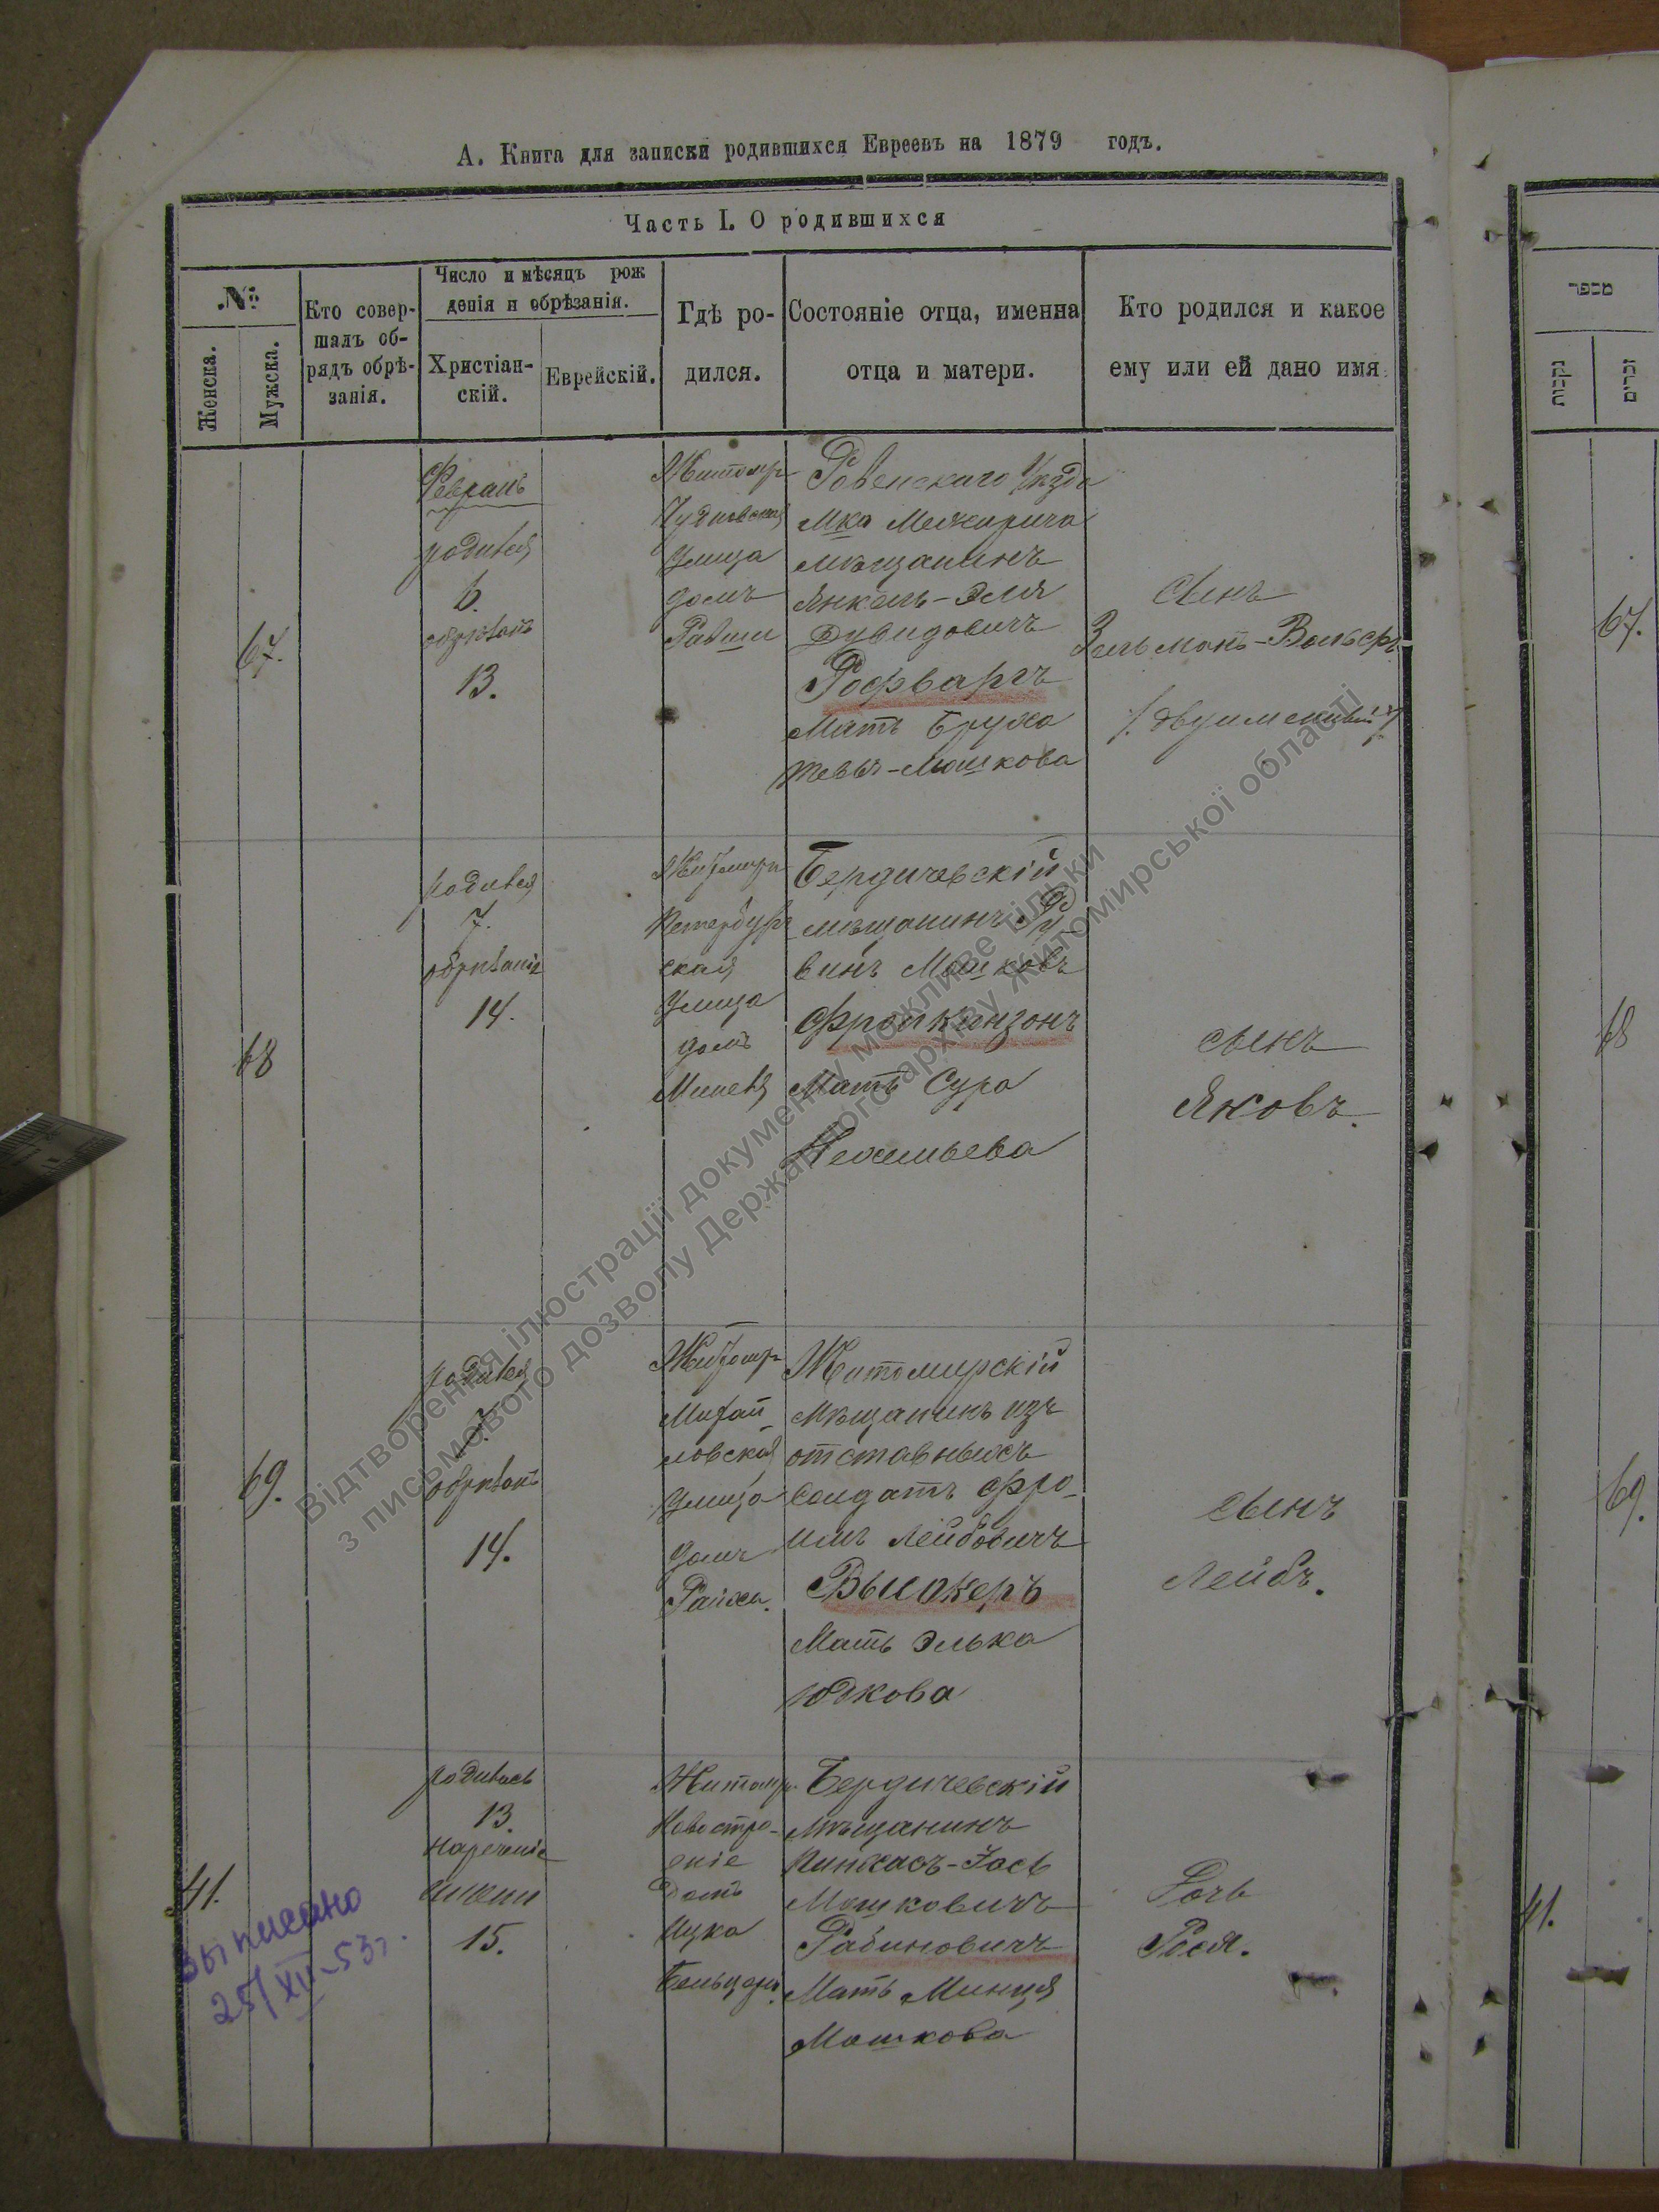 А. Книга для записки родившихся Евреевъ на 1879 годъ.
Часть I. О родившихся
№
Женска.
Мужска.
Кто совер-
шалъ об-
рядъ обрѣ-
занія.
Число и мѣсяцъ рож
денія и обрѣзанія.
Христіан-
скій.
Еврейскій.
Гдѣ ро-
дился.
Состояніе отца, именна
отца и матери.
Кто родился и какое
ему или ей дано имя
67.
Февраль
родився
6.
обрѣзанъ
13.
Житомир
Чудновская
улица
домъ
Ровенскаго Уѣзда
Мка Межирича
мѣщанинъ
Янкель-Эля
Дувидовичъ
Рофваргъ
Мать Бруха
Мошкова
Сынъ
Зельманъ-Вольфъ
/. двуименный ./
68
родився
7.
обрѣзаніе
14.
Житомиръ
Петербург
ская
улица
домъ
Бердичевскій
мѣщанинъ Ру
винъ Мошковъ
Фроимкинзонъ
Мать Сура
Нехемьева
сынъ
Яковъ.
69.
родився
7.
обрѣзанъ
14.
Житомир
Михай
ловская
улица
домъ
Житомирскій
Мѣщанинъ изъ
отставныхъ
Солдатъ Фро-
имъ Лейбовичъ
Мать Элька
Юдкова
сынъ
Лейбъ.
41.
родилась
13.
Нареченіе
имени
15.
Житомир.
Новостро-
еніе
домъ
Ицка
Бердичевскій
Мѣщанинъ
Пинхасъ-Іось
Мошковичъ
Рабиновичъ
Мать Минця
Мошкова
Дочь
Рося.
выписано
25/XII-53г.
מספר
נקבות
זכרים
67.
68
69.
41.
Відтворення ілюстрації документу можливе тільки
з письмового дозволу Державного архіву Житомирської області